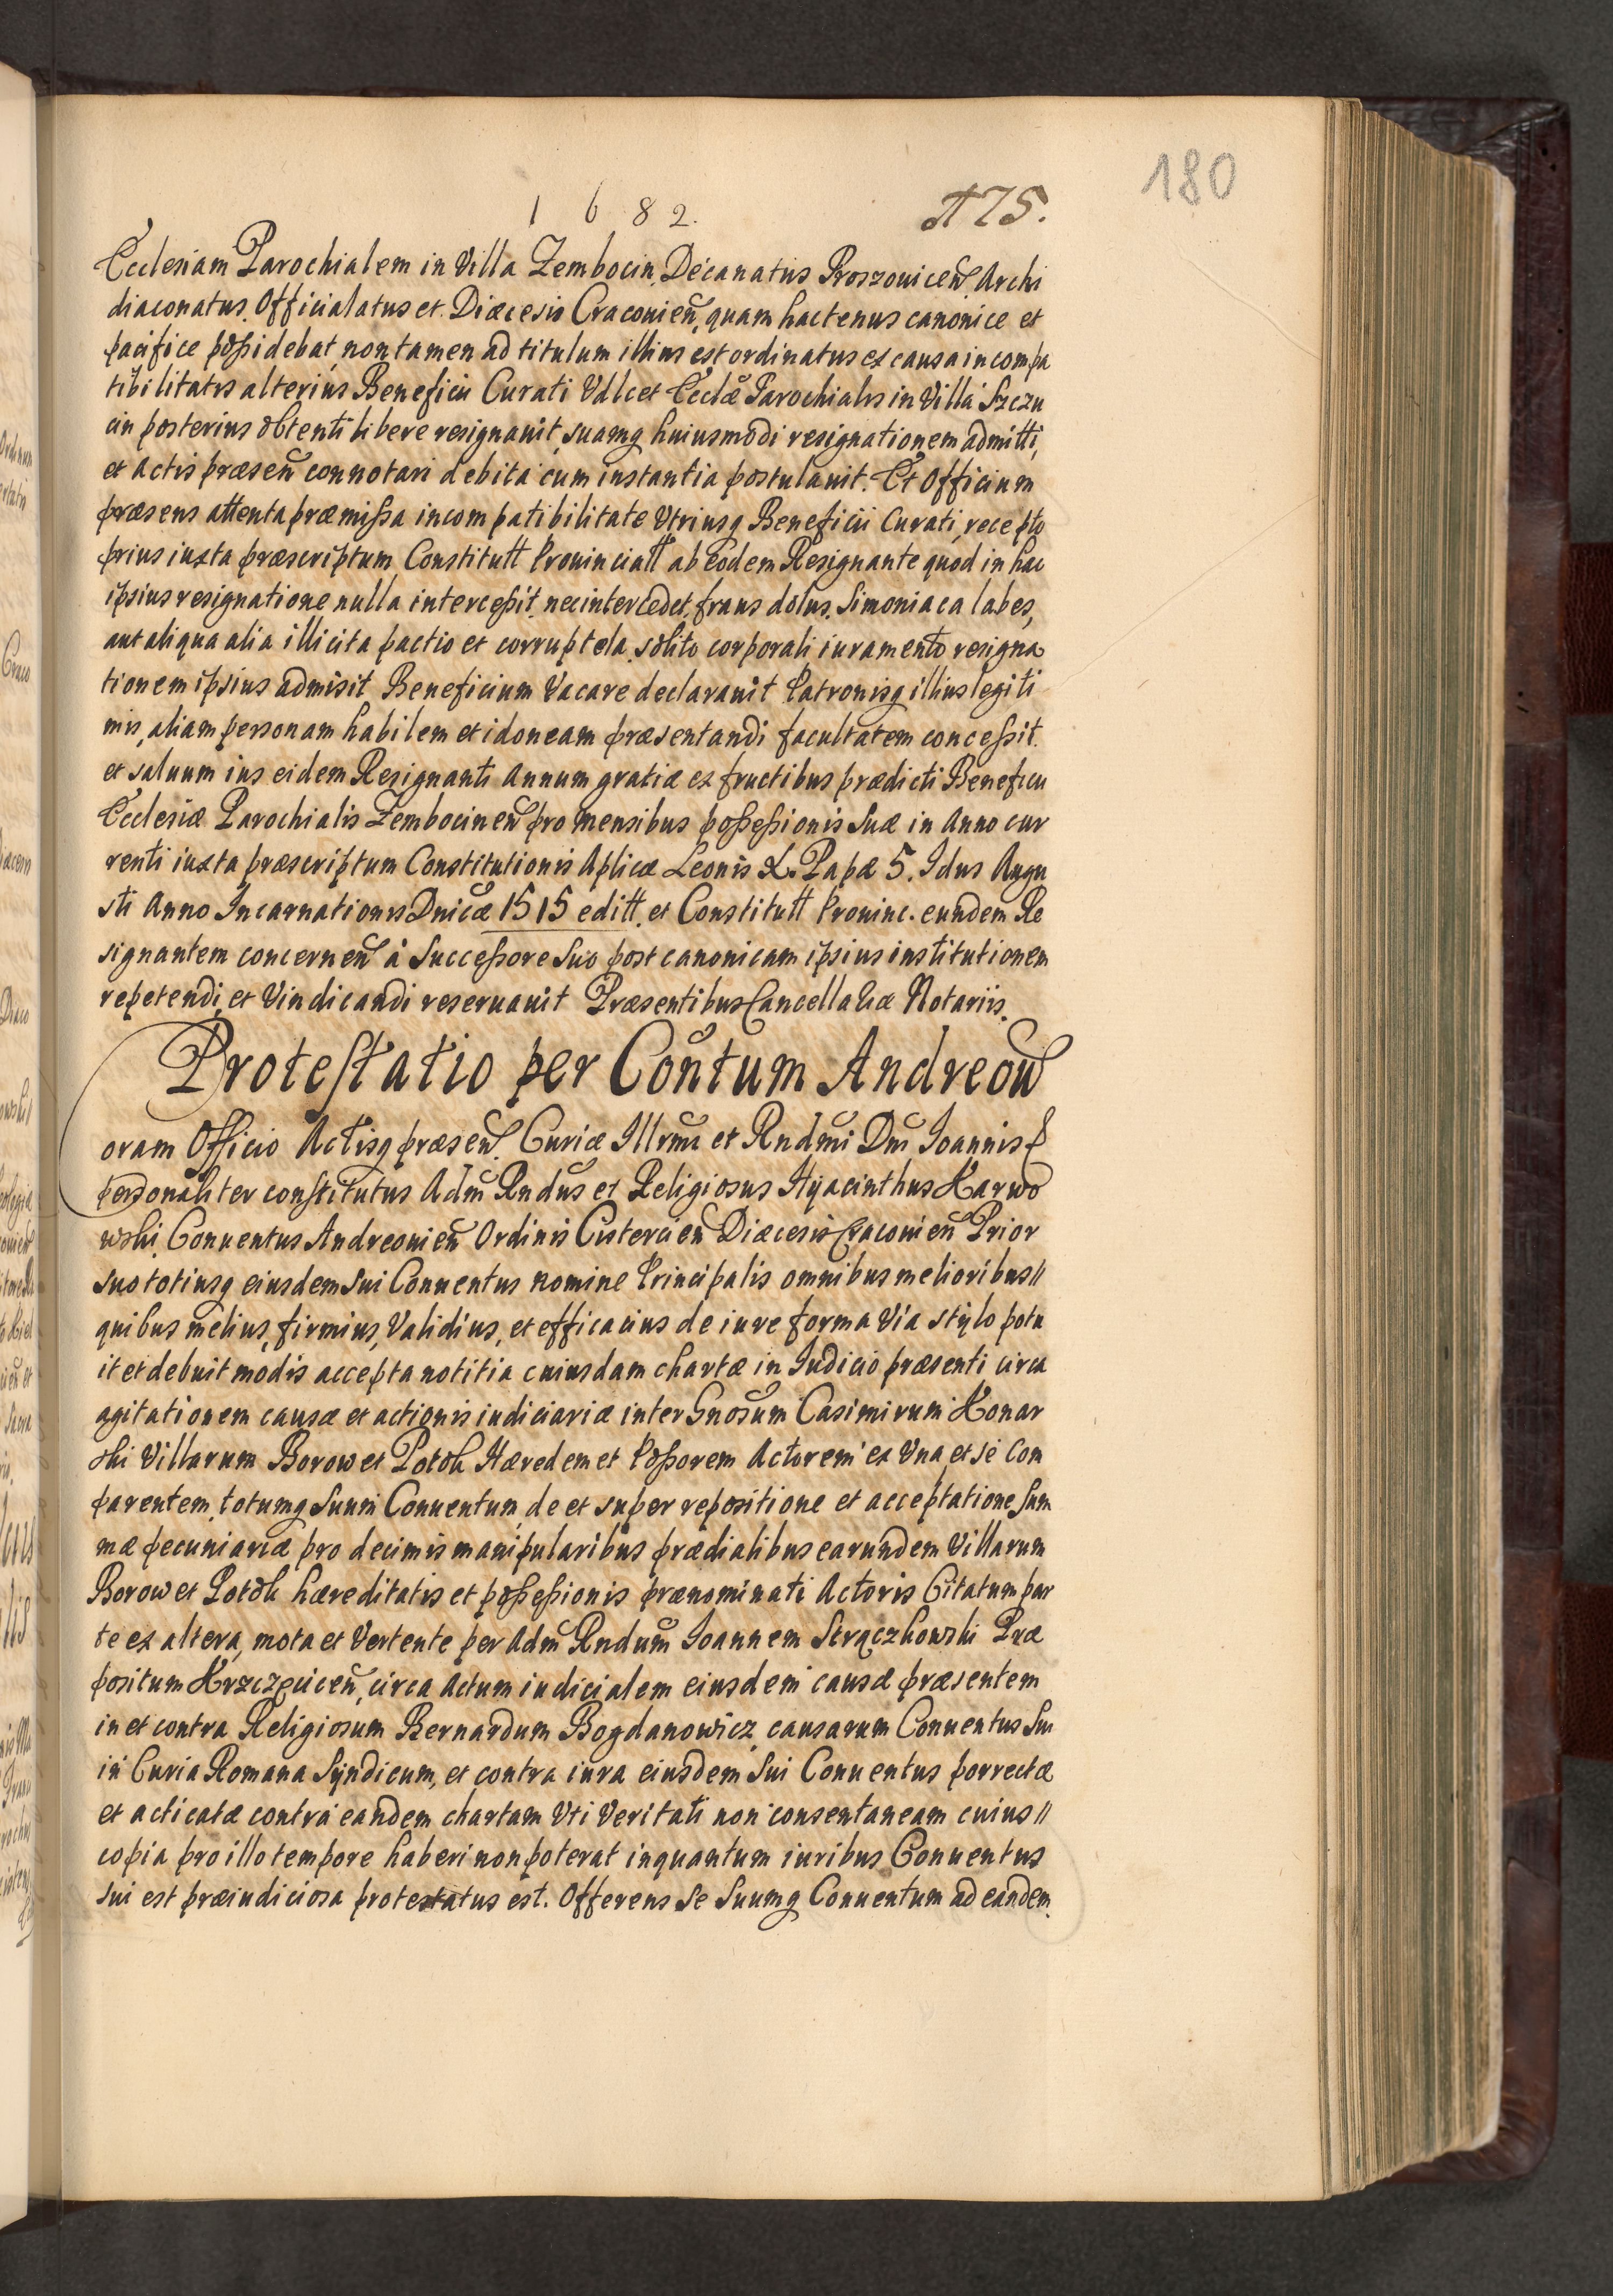 180
1682. 175.
Ecclesiam Parochialem in Villa Zembocin, Decanatus Proszouiceñ. Archi
diaconatus, Officialatus et Diæcesis Cracouieñ, quam hactenus canonice et
pacifice poßidebat, non tamen ad titulum illius est ordinatus ex causa incompa
tibilitatis alterius Beneficii Curati Vdlcet Eccłæ Parochialis in Villa Szczu
cin posterius obtenti libere resignauit, suamq huiusmodi resignationem admitti,
et actis præseñ connotari debita cum instantia postulauit. Et Officium
præsens attenta præmißa incompatibilitate Vtriusq Beneficii Curati, recepto
prius iuxta præscriptum Constitutt Prouinciall ab eodem Resignante quod in hac
ipsius resignatione nulla interceßit, nec intercedet, fraus dolus, Simoniaca labes,
aut aliqua alia illicita pactio et corruptela, solito corporali iuramento resigna
tionem ipsius admisit Beneficium Vacare declarauit Patronisq illius legiti
mis, aliam personam habilem et idoneam præsentandi facultatem conceßit.
et saluum ius eidem Resignanti Annum gratiæ ex fructibus prædicti Beneficii
Ecclesiæ Parochialis Zembocineñ pro mensibus poßeßionis Suæ in Anno cur
renti iuxta præscriptum Constitutionis Aplicæ Leonis X. Papæ 5. Idus Augu
sti Anno Incarnationis Dnicæ 1515 editt. et Constitutt Prouinc. eundem Re
signantem concerneñ à Succeßore Suo post canonicam ipsius institutionem
repetendi, et Vindicandi reseruauit Præsentibus Cancellariæ Notariis.
Protestatio per Contum Andreow
Coram Officio Actisq præseñ. Curiæ Illrmi et Rndmi Dni Ioannis
personaliter constitutus Adm Rndus et Religiosus Hyacinthus Karwo
wski Conuentus Andreouieñ Ordinis Cistercieñ Diæcesis Cracouieñ Prior
suo totiusq eiusdem Sui Conuentus nomine Principalis omnibus melioribus //
quibus melius, firmius, Validius, et efficacius de iure forma Via stylo potu
it et debuit modis accepta notitia cuiusdam chartæ in Iudicio præsenti circa
agitationem causæ et actionis iudiciariæ inter Gnosum Casimirum Konar
ski Villarum Borow et Potok Hæredem et Poßorem Actorem ex Vna et se Com
parentem, totumq Suum Conuentum, de et super repositione et acceptatione Sum
mæ pecuniariæ pro decimis manipularibus prædialibus earundem Villarum
Borow et Potok hæreditatis et poßeßionis prænominati Actoris Citatum par
te ex altera, mota et Vertente per Adm Rndum Ioannem Strączkowski Præ
positum Krzczęciceñ, circa Actum iudicialem eiusdem causæ præsentem
in et contra Religiosum Bernardum Bogdanowicz, causarum Conuentus Sui
in Curia Romana Syndicum, et contra iura eiusdem Sui Conuentus porrectæ
et acticatæ contra eandem chartam Vti Veritati non consentaneam cuius //
copia pro illo tempore haberi non poterat inquantum iuribus Conuentus
Sui est præiudiciosa protestatus est. Offerens Se Suumq Conuentum ad eandem